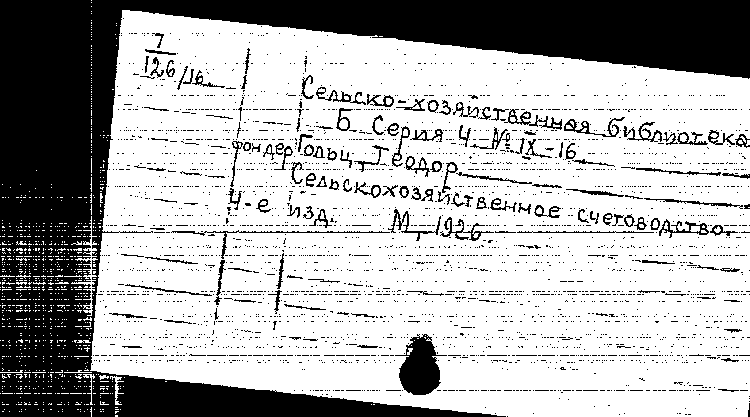 7
126/16
Сельско-хозяйственная библиотека
Б. Серия 4. № IX-16
фондер Гольц, Теодор.
Сельскохозяйственное счетоводство.
4-е изд. М., 1926.